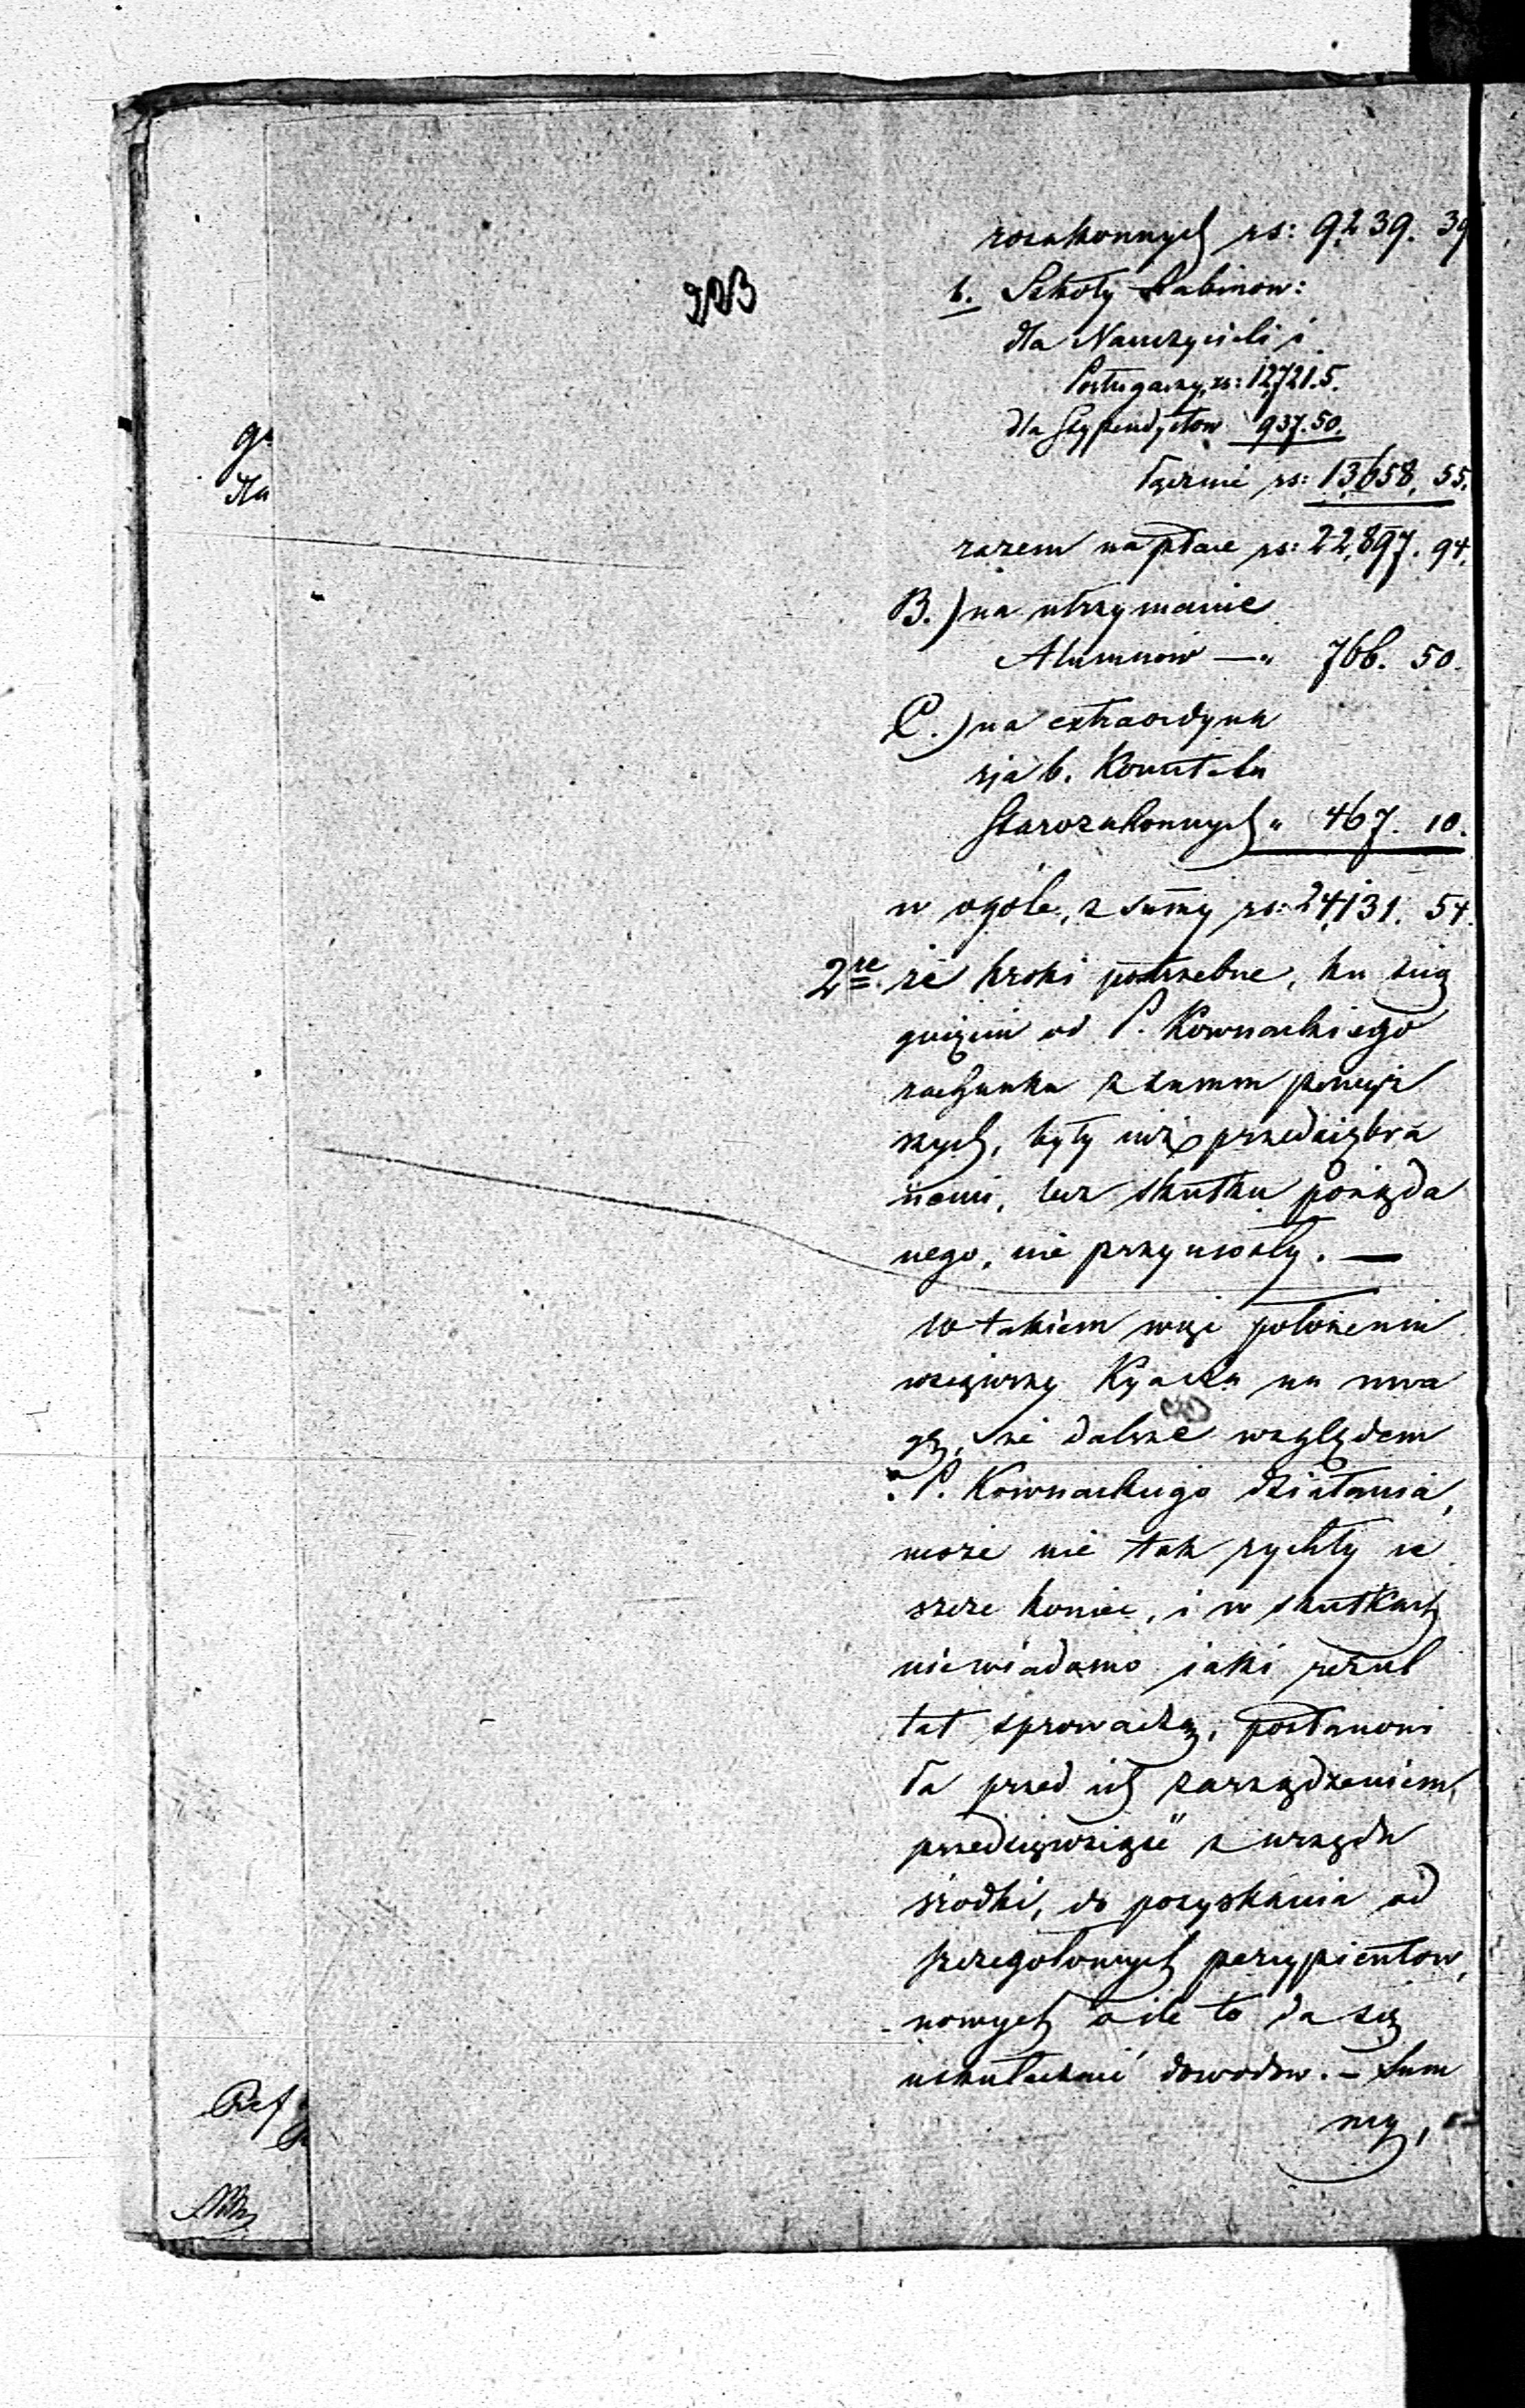 223
rozakonnych rs: 9239. 39
b. Szkoły Rabinow:
dla Nauczycieli i
Posługaczy, rs: 12,721.5.
dla Stypendystow 937.50.
łącznie rs: 13,658. 55.
razem na płace rs: 22,897. 94.
B.) na utrzymanie
Alumnow — „ 766. 50.
C.) na extraordyna
rja b. Komitetu
Starozakonnych „ 467. 10.
w ogóle, z summy rs: 24,131. 54.
2re że kroki potrzebne, ku
od P. Kownackiego
rachunku z summ powyż
szych, były już przedsiębra
nemi, lecz skutku pożąda
nego, nie przyniosły. —
W takiem więc położeniu
wziąwszy Kassa na uwa
gę, że dalsze względem
P. Kownackiego działania,
może nie tak rychły ie
szcze koniec, i w skutkach
niewiadomo jaki rezul
tat sprowadzą, postanowi
ła przed ich zarządzeniem,
przedsięwziąść z urzędu
środki, do pozyskania od
szczegołowych percypientow,
nowych o ile to da się
uskutecznić dowodow. – Sum
my,